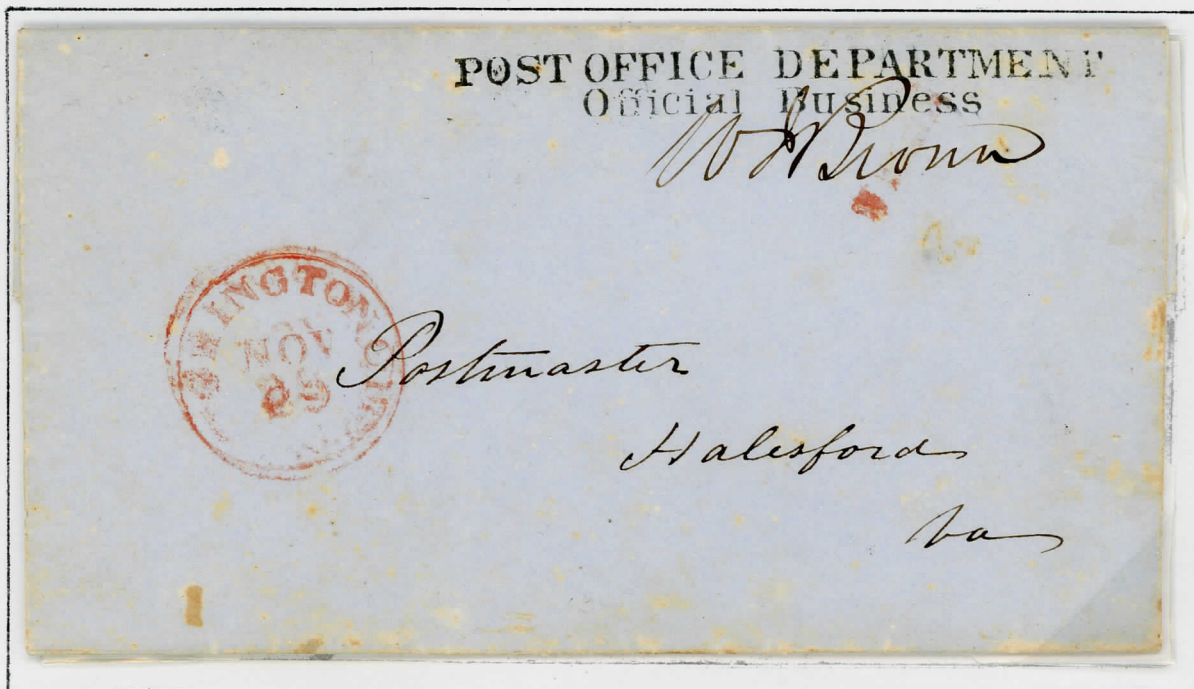 POST OFFICE DEPARTMENT
Official Business
W J Brown
SHINGTON CIT
NOV
29
Postmaster
Halesford
Va